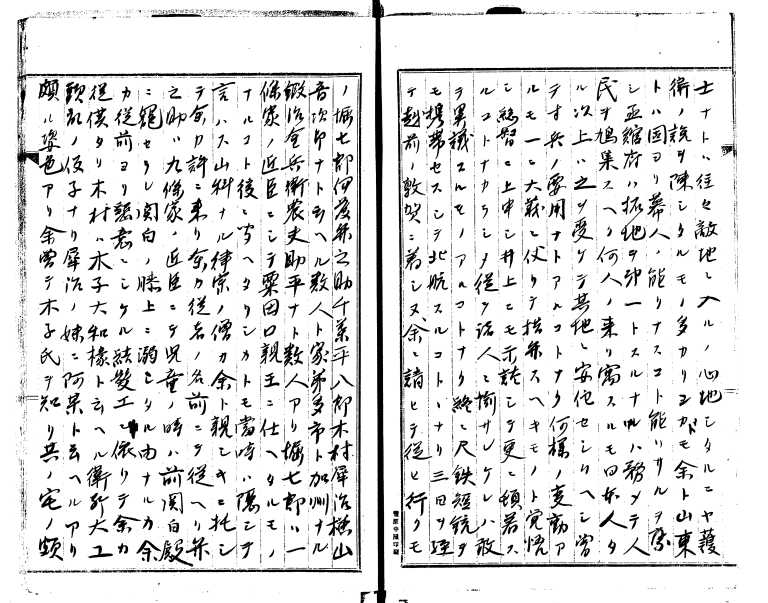 士ナトハ往々敵地ニ入ルノ心地シタルニヤ護
衛ノ説ヲ陳シタルモノ多カリシカモ余ト山東
トハ固ヨリ幕人ノ能クナスコト能ハサルヲ
シ且館府ハ拓地ヲ第一トスルナレハ務メテ人
民ヲ鳩集スヘク何人ノ来リ寓スルモ日本人タ
ル次上ハ之ヲ受ケテ其地ニ安他セシムヘシ曽
テ寸兵ノ要用ナトアルコトナク何様ノ変動ア
ルモ一ニ大義ニ仗リテ措弁スヘキモノト覚悟
シ総督ニ上申シ井上ニモ示談シテ更ニ頓着ス
ルコトナカラシメ従ヲ諸人ニ愉サレケレハ敢
ヲ異議スルモノアルコトナク終ニ尺鉄短銃ヲ
モ携帯セスシテ北航スルコトトナリ三日ヲ経
テ越前ノ敦賀ニ着シヌ余ニ請ヒテ従ヒ行クモ
ノ堀七郎何彦弁之助千葉平八郎木村犀治横山
音次郎ナト云ヘル数人ト家弟多市ト加洲ナル
鍛治金兵衛農夫助平ナト数人アリ堀七郎ハ一
條家ノ近臣ニシテ粟田口親王ニ仕ヘタルモノ
ナルコト後ニ聞ヘタリシカトモ当時ハ隠シテ
言ハス山科ナル律宗ノ僧カ余ト親シキニ托シ
テ余カ許ニ来リ余カ従者ノ名前ニテ従ヘリ弁
之助ハ九條家ノ近臣ニテ児童ノ時ハ前関白殿
ニ寵セラレ関白ノ膝上ニ溺シタル由ナルカ余
カ従前ヨリ認意ニシケル結髪工ニ依リテ余カ
従僕タリ木村ハ木子大和椽ト云ヘル衛所大工
頭都ノ仮子ナリ犀治ノ妹ニ阿杲ト云ヘルアリ
頗ル姿色アリ余曽テ木子氏ヲ知リ其ノ宅ノ頗